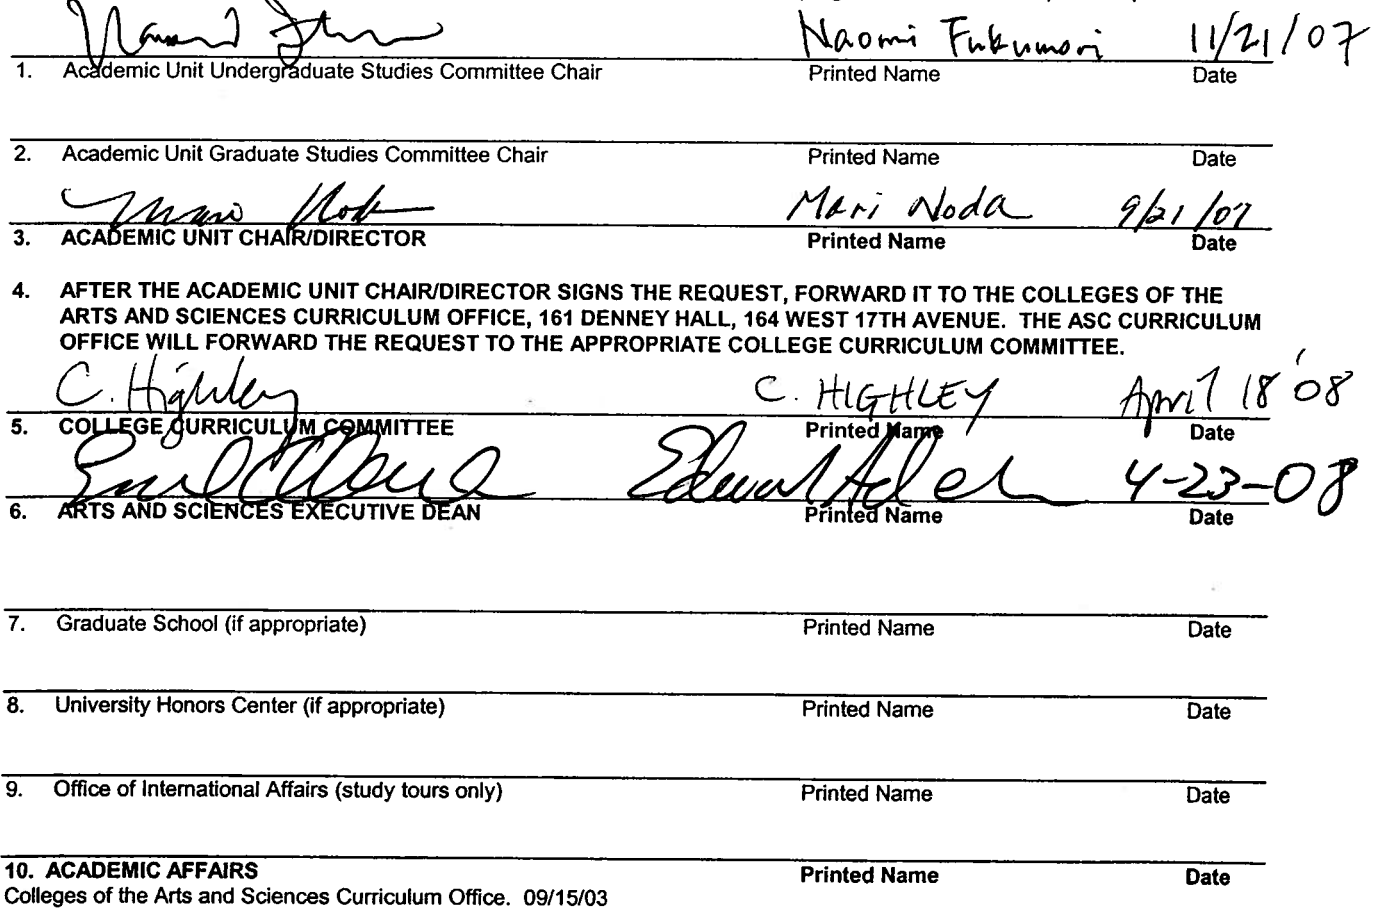 Naomi Fukumori 11/21/07
1. Academic Unit Undergraduate Studies Committee Chair Printed Name Date
2. Academic Unit Graduate Studies Committee Chair Printed Name Date
Mari Noda Mari Noda 9/21/07
3. ACADEMIC UNIT CHAIR/DIRECTOR Printed Name Date
4. AFTER THE ACADEMIC UNIT CHAIR/DIRECTOR SIGNS THE REQUEST, FORWARD IT TO THE COLLEGES OF THE
ARTS AND SCIENCES CURRICULUM OFFICE, 161 DENNEY HALL, 164 WEST 17TH AVENUE. THE ASC CURRICULUM
OFFICE WILL FORWARD THE REQUEST TO THE APPROPRIATE COLLEGE CURRICULUM COMMITTEE.
C. Highley C. HIGHLEY April 18 '08
5. COLLEGE CURRICULUM COMMITTEE Printed Name Date
4-23-08
6. ARTS AND SCIENCES EXECUTIVE DEAN Printed Name Date
7. Graduate School (if appropriate) Printed Name Date
8. University Honors Center (if appropriate) Printed Name Date
9. Office of International Affairs (study tours only) Printed Name Date
10. ACADEMIC AFFAIRS Printed Name Date
Colleges of the Arts and Sciences Curriculum Office. 09/15/03